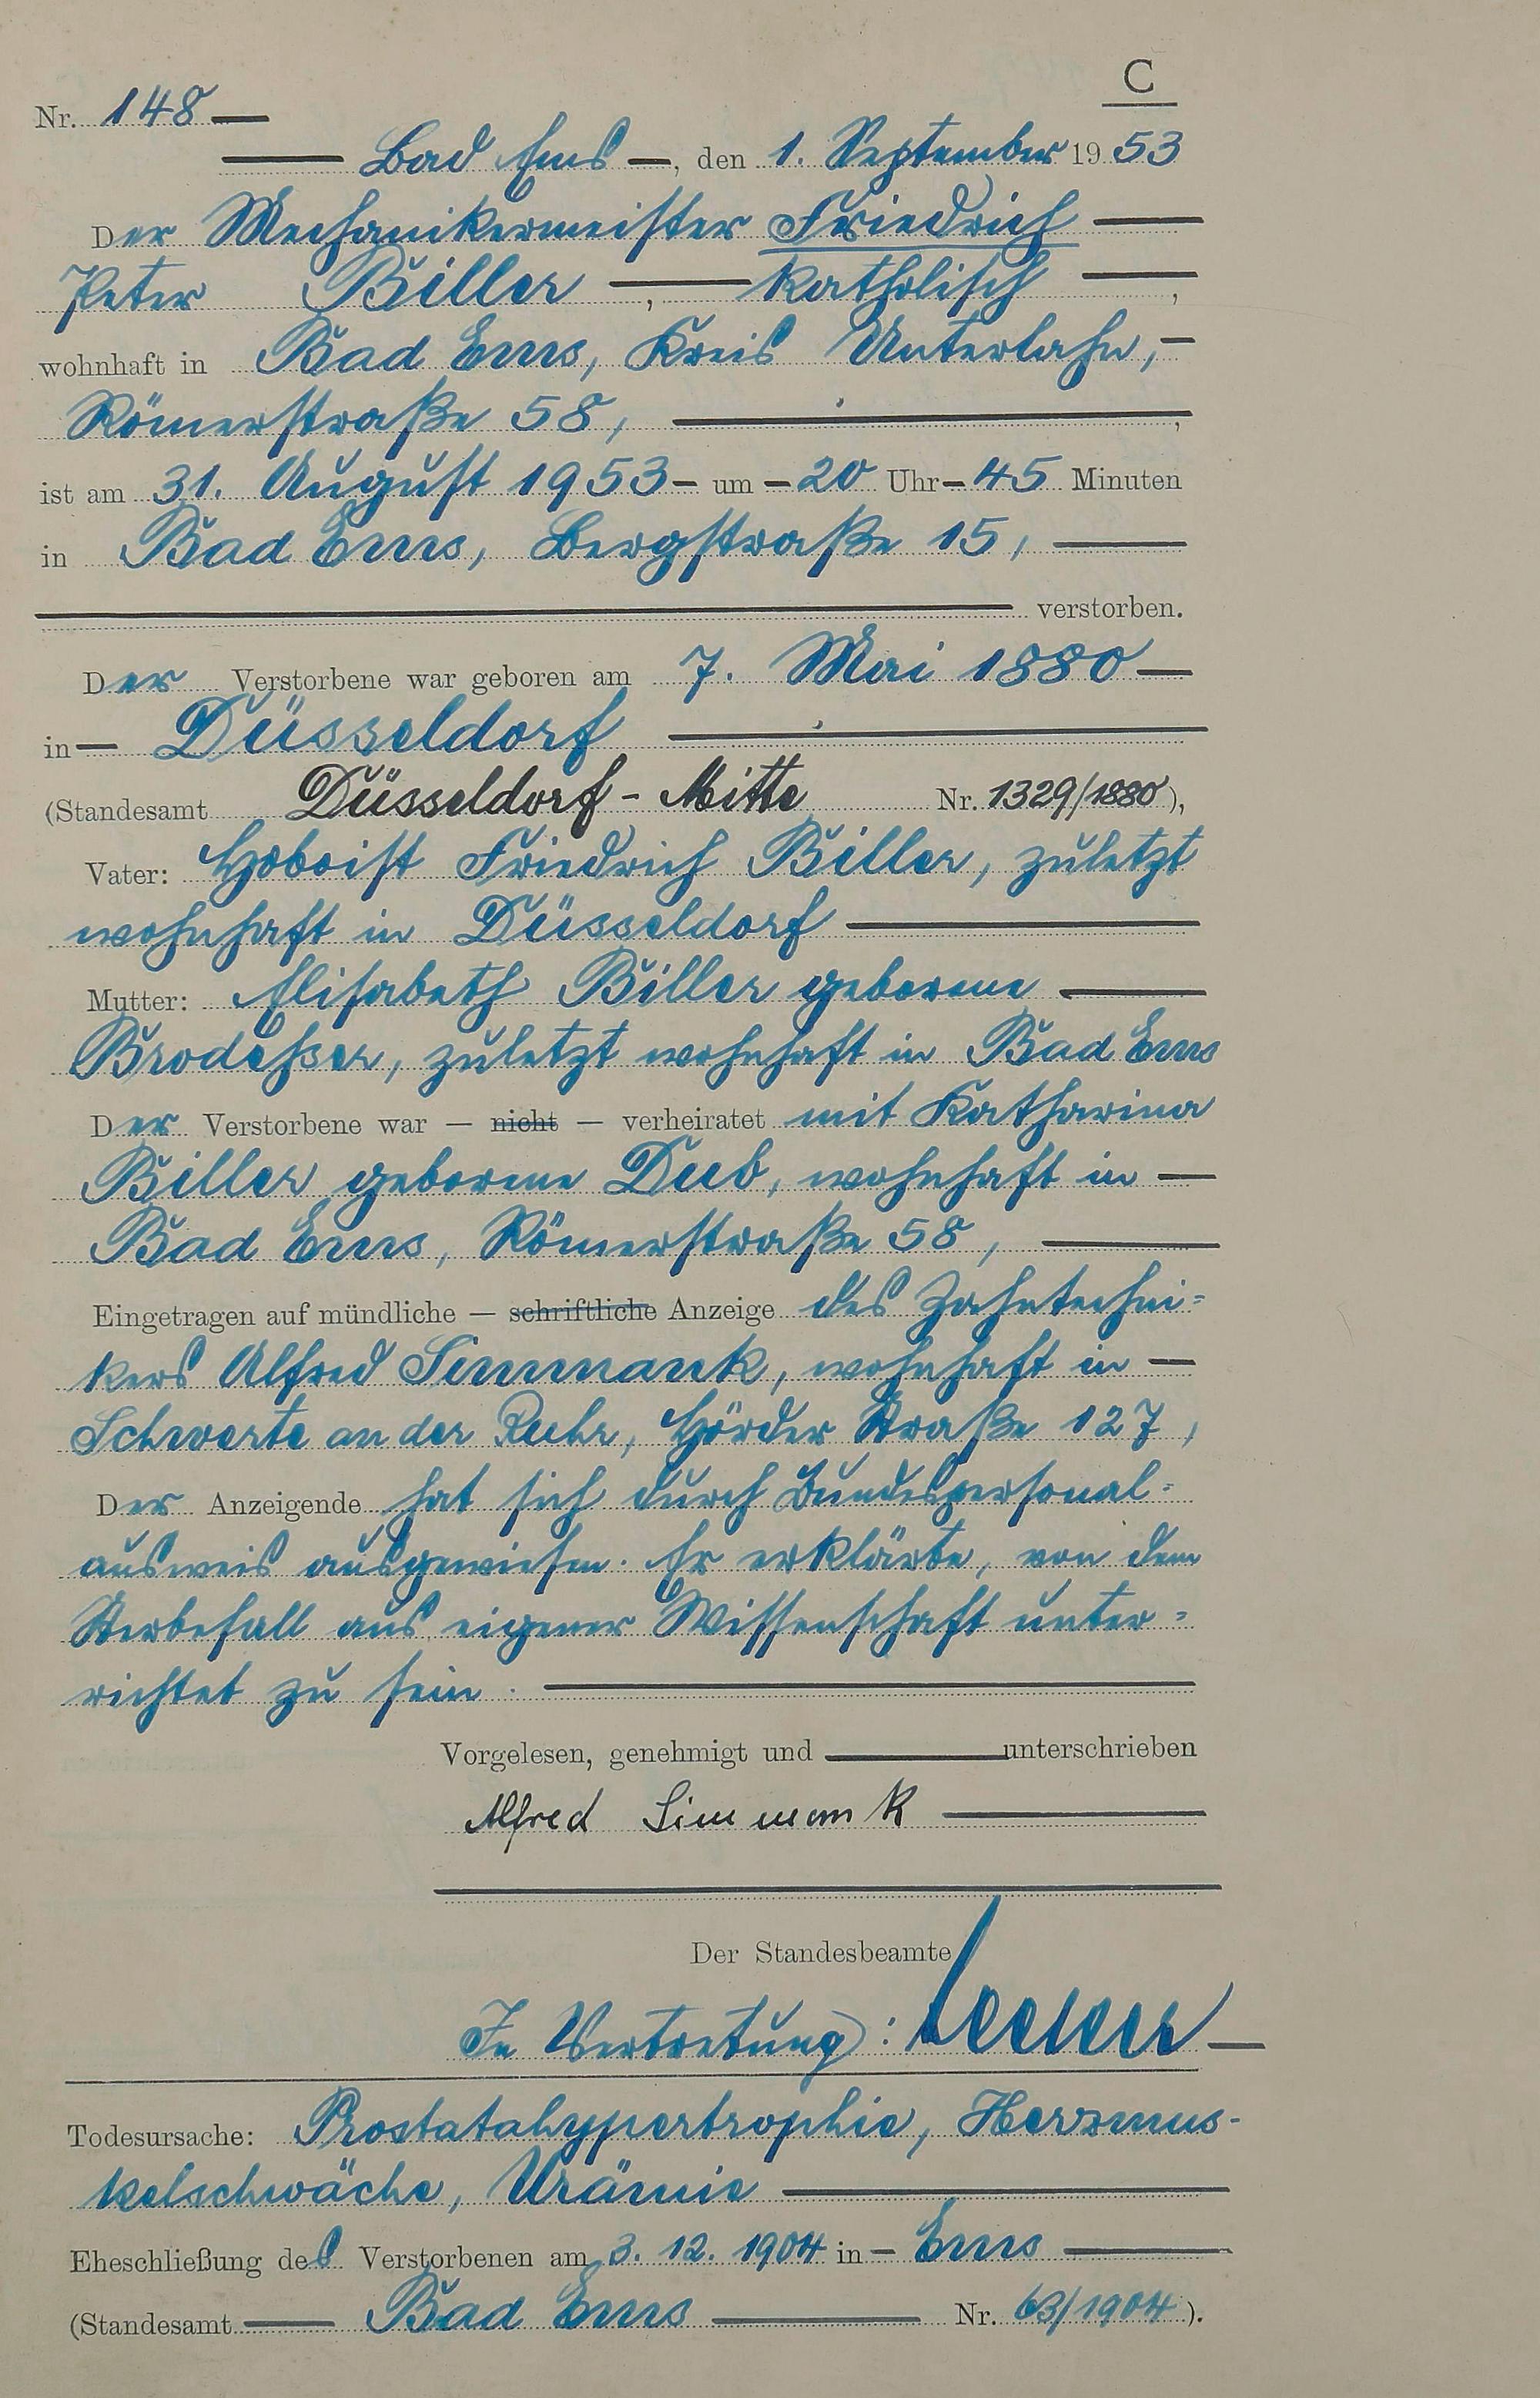 C
Nr. 148 —
— Bad Ems —, den 1. September 1953
Der Mechanikermeister Friedrich —
Peter Biller —, — katholisch —,
wohnhaft in Bad Ems, Kreis Unterlahn, —
Römerstraße 58, —,
ist am 31. August 1953 — um — 20 Uhr — 45 Minuten
in Bad Ems, Bergstraße 15, —
— verstorben.
Der Verstorbene war geboren am 7. Mai 1880 —
in — Düsseldorf —
(Standesamt Düsseldorf - Mitte Nr. 1329/1880),
Vater: Hoboist Friedrich Biller, zuletzt
wohnhaft in Düsseldorf —
Mutter: Elisabeth Biller geborene —
Brodeßer, zuletzt wohnhaft in Bad Ems
Der Verstorbene war — nicht — verheiratet mit Katharina
Biller geborene Dub, wohnhaft in —
Bad Ems, Römerstraße 58, —
Eingetragen auf mündliche — schriftliche Anzeige des Zahntechni=
kers Alfred Simmank, wohnhaft in —
Schwerte an der Ruhr, Hörder Straße 127,
Der Anzeigende hat sich durch Bundespersonal=
ausweis ausgewiesen. Er erklärte, von dem
Sterbefall aus eigener Wissenschaft unter=
richtet zu sein. —
Vorgelesen, genehmigt und — unterschrieben
Alfred Simmank —
Der Standesbeamte
In Vertretung: —
Todesursache: Prostatahypertrophie, Herzmus-
kelschwäche, Urämie —
Eheschließung des Verstorbenen am 3. 12. 1904 in — Ems —
(Standesamt — Bad Ems — Nr. 63/1904).